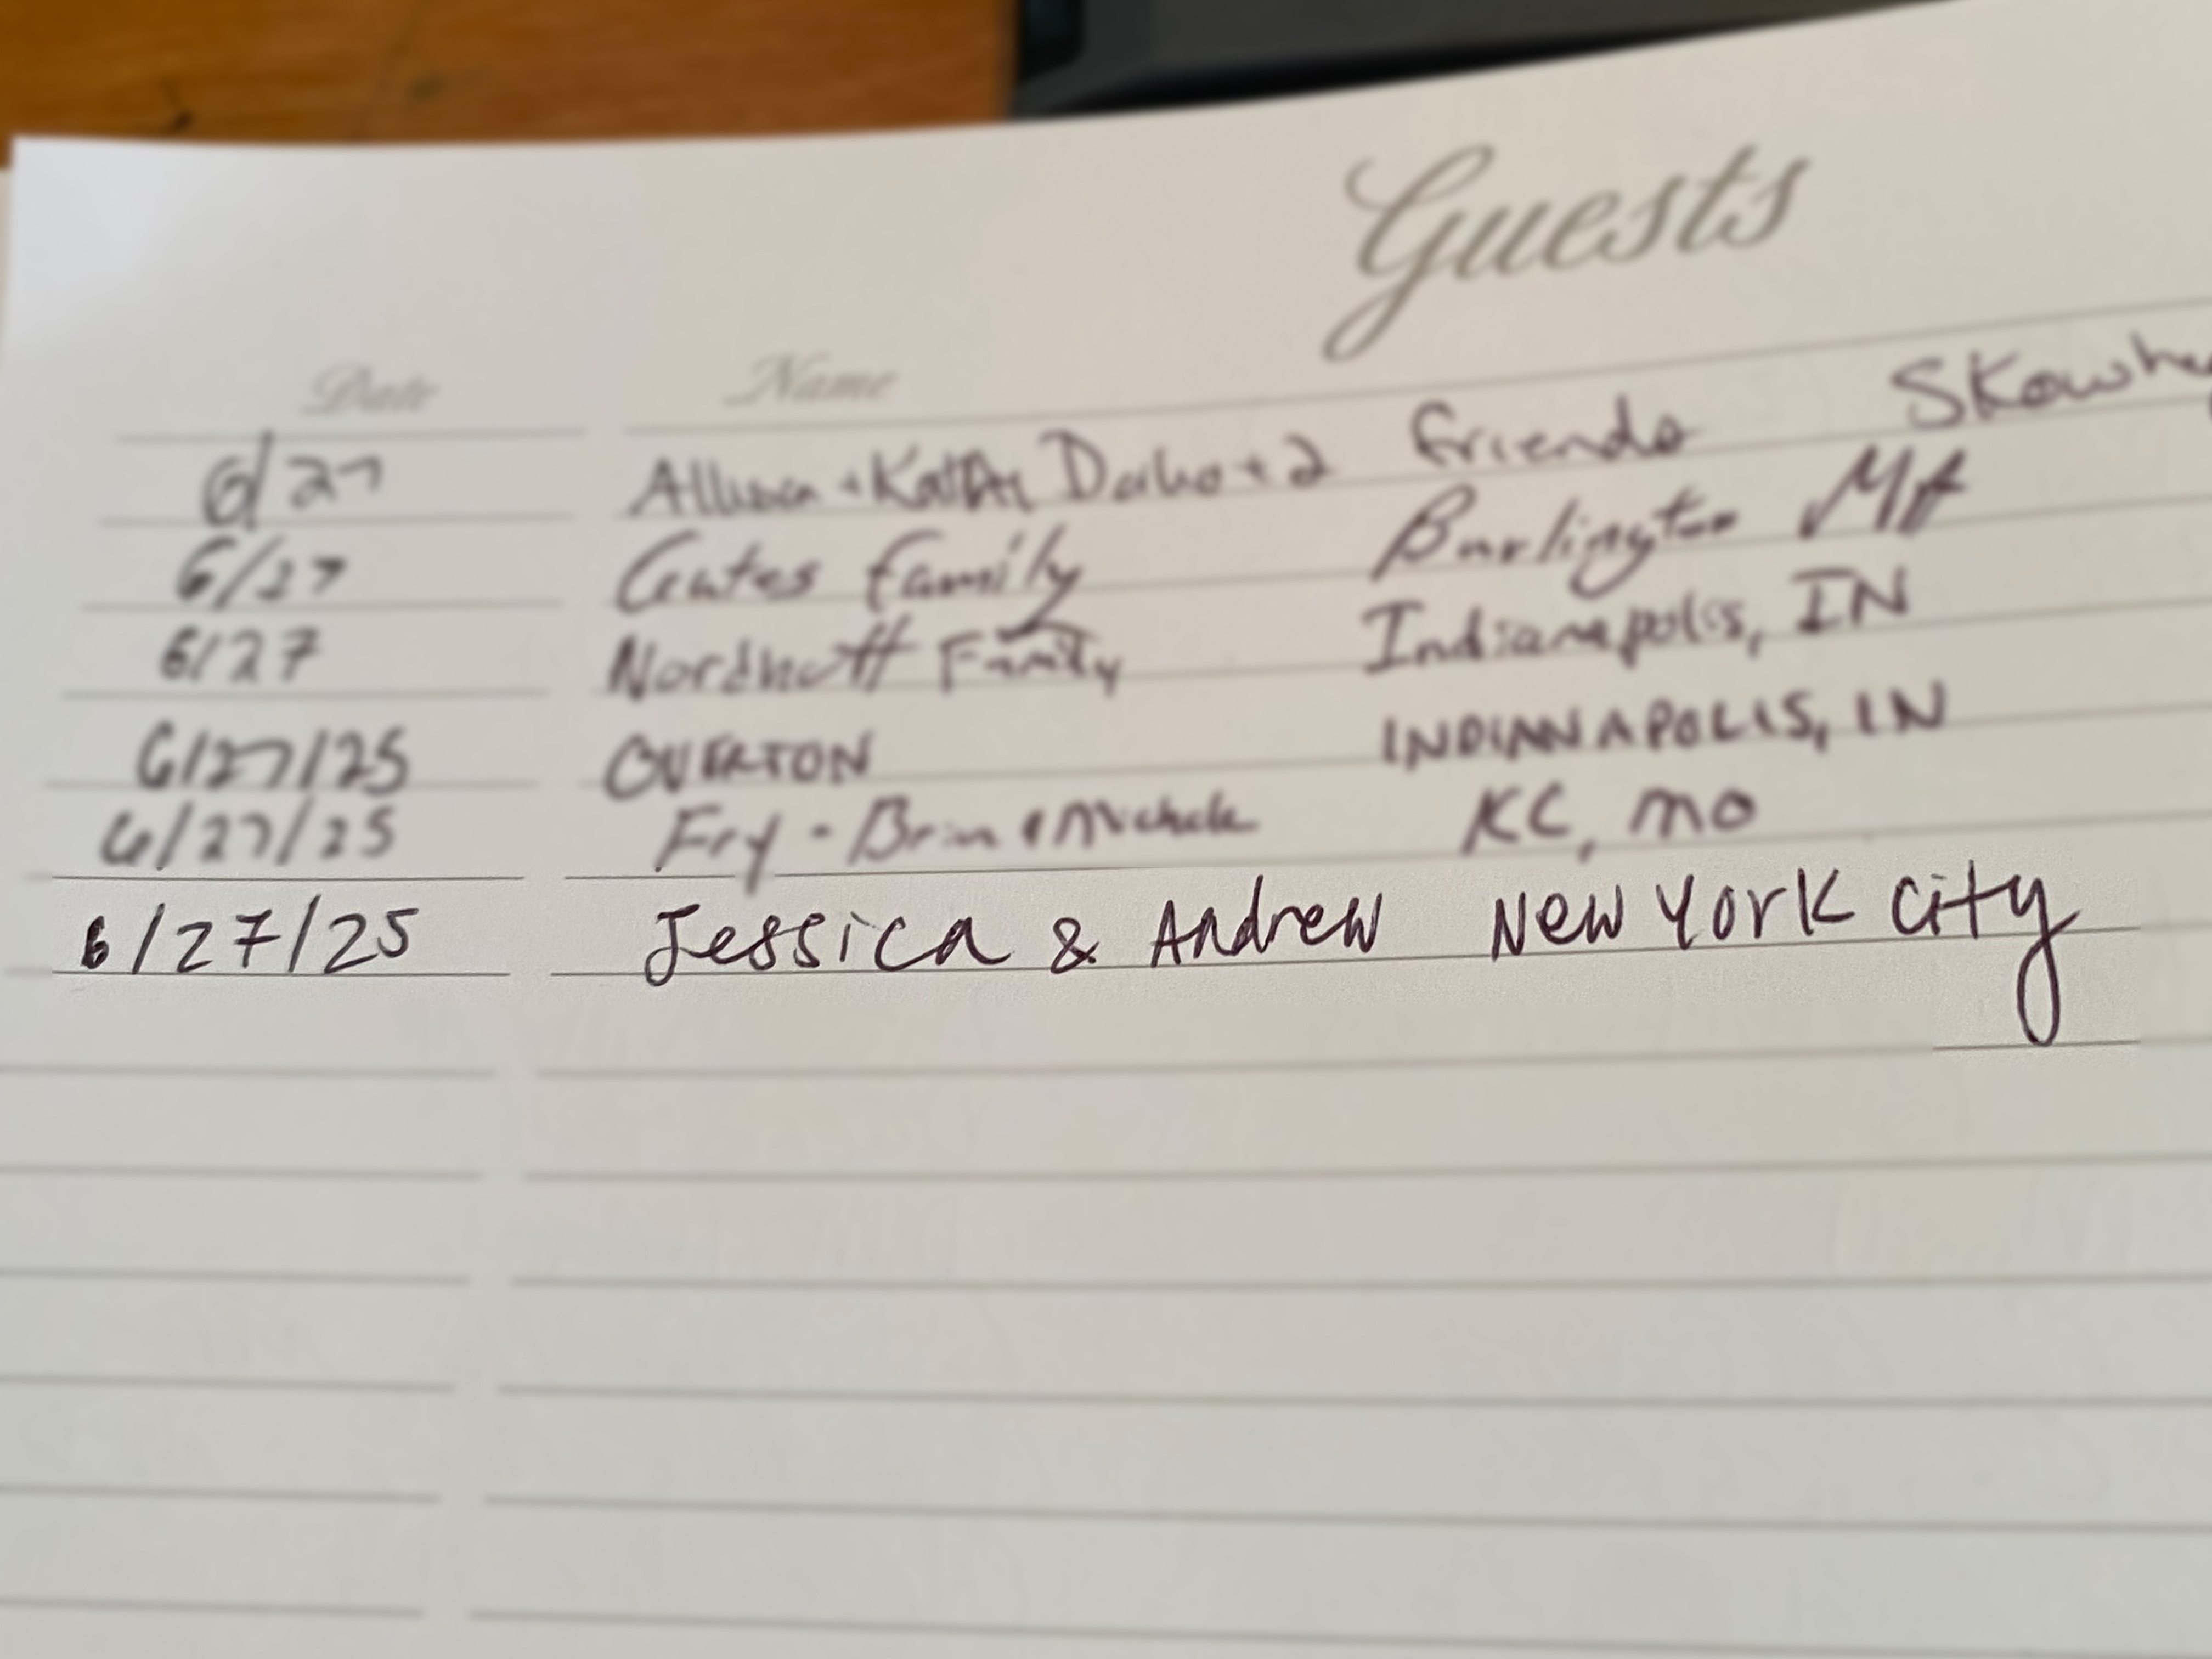 Guests
Date Name
6/27 + 2 friends
6/27 Gates Family Burlington MA
6/27 Nordhoff Family Indianapolis, IN
6/27/25 OVERTON INDIANAPOLIS, IN
6/27/25 Fry - Brian & Michele KC, MO
6/27/25 Jessica & Andrew New York City